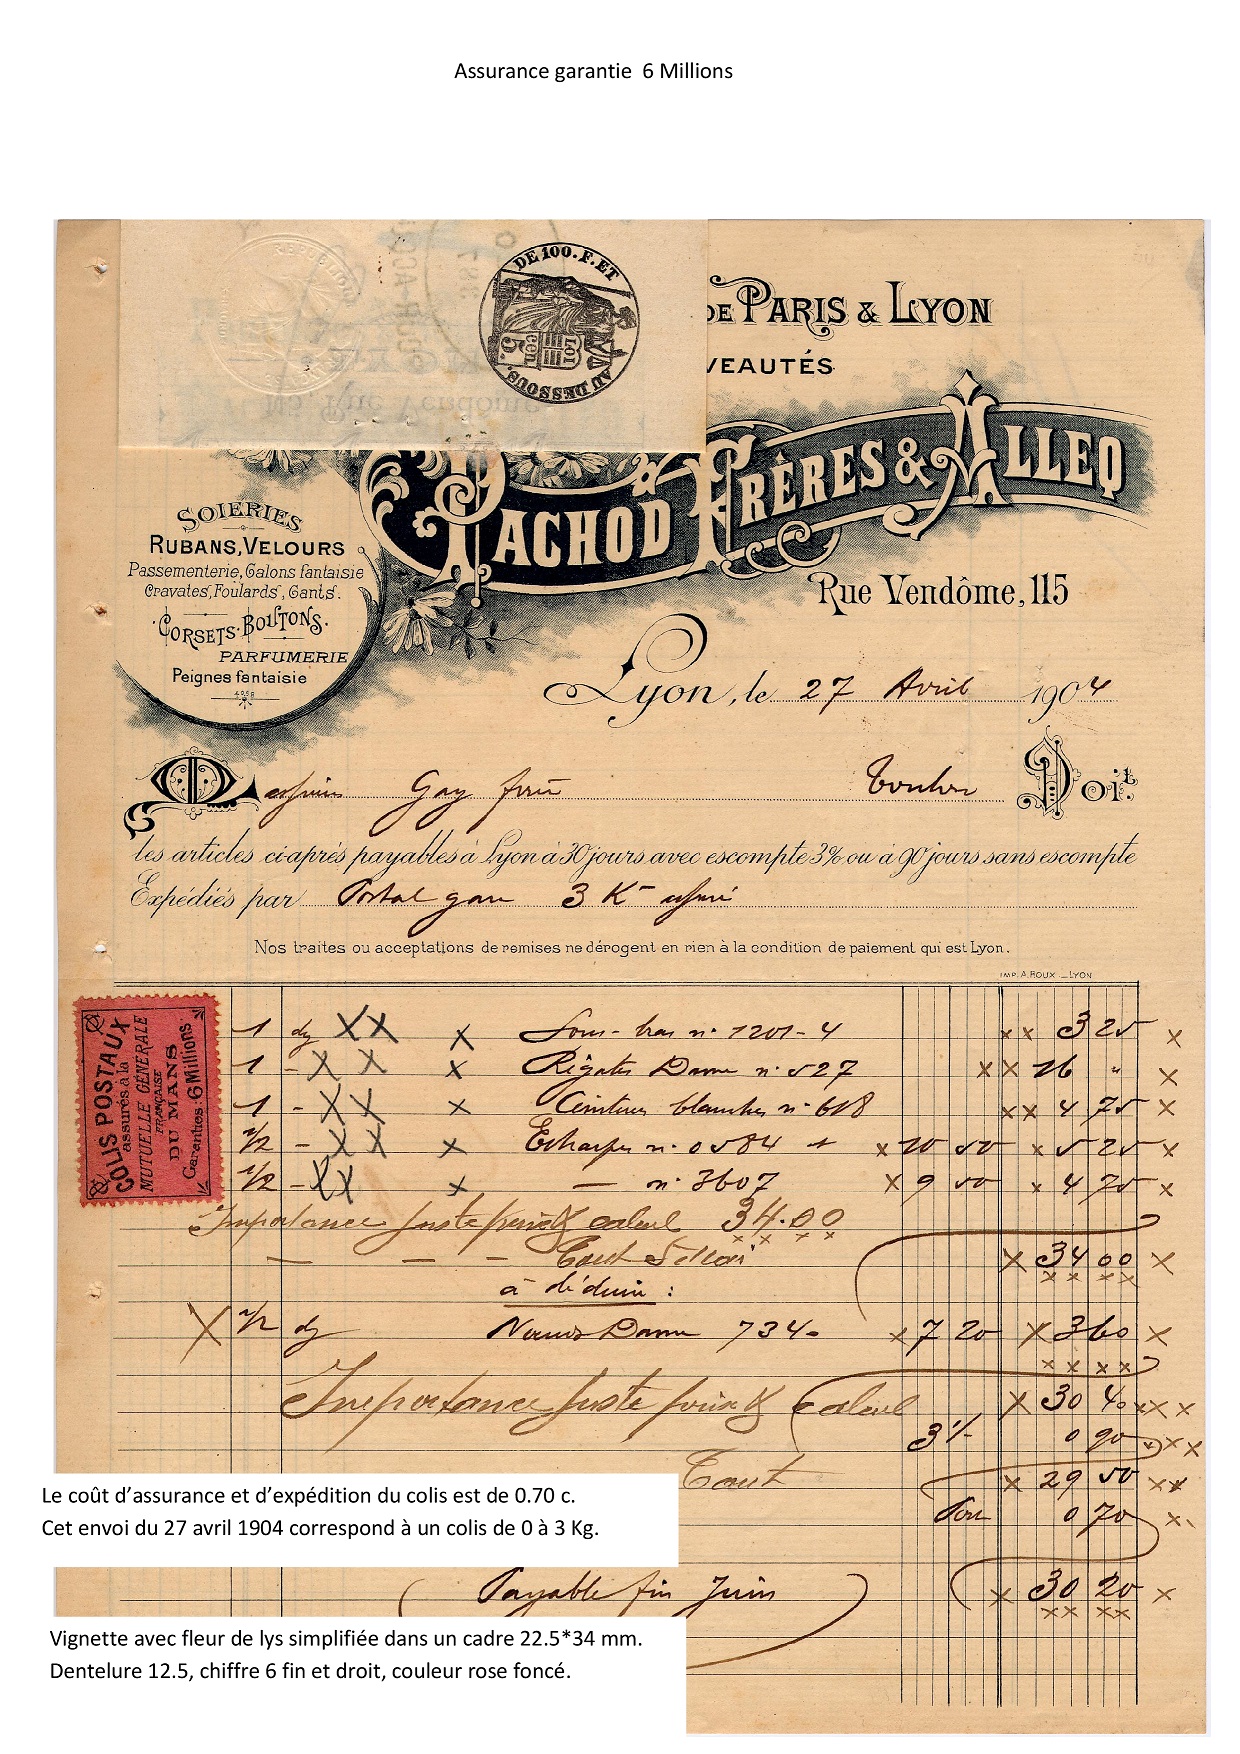 Assurance garantie 6 Millions
DE 100. F. ET
LOI
5 cen.
AU DESSOUS.
REPUBLIQUE
DE PARIS & LYON
VEAUTÉS
PACHOD FRÈRES & ALLEQ
Rue Vendôme, 115
SOIERIES
RUBANS, VELOURS
Passementerie, Galons fantaisie
Cravates, Foulards, Gants.
CORSETS. BOUTONS.
PARFUMERIE
Peignes fantaisie
Lyon, le 27 Avril 1904
Messieurs Gay frères Toulon Doit
les articles ci-après payables à Lyon à 30 jours avec escompte 3% ou à 90 jours sans escompte
Expédiés par Postal gare 3 K assuré
Nos traites ou acceptations de remises ne dérogent en rien à la condition de paiement qui est Lyon.
IMP. A. ROUX _ LYON
COLIS POSTAUX
assurés à la
MUTUELLE GÉNÉRALE
FRANÇAISE
DU MANS
Garanties: 6 Millions
1 dz XX x Sous-bras n° 1201-4 xx 3 25 x
1 - X X x Régates Dame n° 527 xx 16 " x
1 - XX x Ceintures blanches n° 618 xx 4 75 x
1/2 - X X x Echarpes n° 0584 x 10 50 x 5 25 x
1/2 - XX x — n° 3607 x 9 50 x 4 75 x
Importance juste prix & calcul 34.00
— — - x 34 00 x
à déduire :
X 1/2 dz Noeuds Dame 734 x 7 20 x 3 60 x
Importance juste prix & calcul x 30 40 x x x
3 % 0 90 x x x
x 29 50 xx
Port 0 70 x
Payable fin Juin x 30 20 x
Le coût d’assurance et d’expédition du colis est de 0.70 c.
Cet envoi du 27 avril 1904 correspond à un colis de 0 à 3 Kg.
Vignette avec fleur de lys simplifiée dans un cadre 22.5*34 mm.
Dentelure 12.5, chiffre 6 fin et droit, couleur rose foncé.